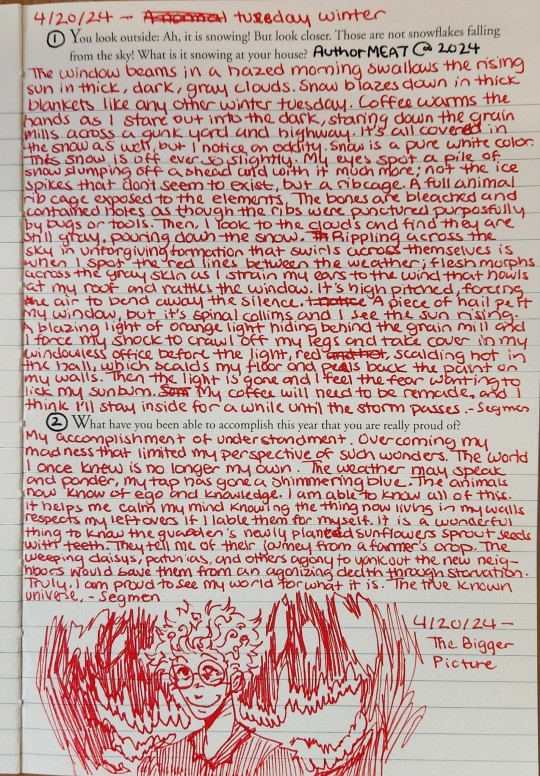 4/20/24 - A normal tuesday winter
① You look outside: Ah, it is snowing! But look closer. Those are not snowflakes falling
from the sky! What is it snowing at your house? AuthorMEAT @ 2024
The window beams in a hazed morning swallows the rising
sun in thick, dark, gray clouds. Snow blazes down in thick
blankets like any other winter tuesday. Coffee warms the
hands as I stare out into the dark, staring down the grain
mills across a gunk yard and highway. It's all covered in
the snow as well, but I notice an oddity. Snow is a pure white color.
This snow is off ever so slightly. My eyes spot a pile of
snow slumping off a shead and with it much more; not the ice
spikes that don't seem to exist, but a ribcage. A full animal
rib cage exposed to the elements. The bones are bleached and
contained holes as though the ribs were punctured purposfully
by bugs or tools. Then, I look to the clouds and find they are
still gray, pouring down the snow. Rippling across the
sky in unforgiving formation that swirls across themselves is
when I spot the red lines between the weather; flesh morphs
across the gray skin as I strain my ears to the wind that howls
at my roof and rattles the window. It's high pitched, forcing
the air to bend away the silence. I notice A piece of hail pelt
my window, but it's spinal collims and I see the sun rising.
A blazing light of orange light hiding behind the grain mill and
I force my shock to crawl off my legs and take cover in my
windowless office before the light, red and hot, scalding hot in
the hall, which scalds my floor and peels back the paint on
my walls. Then the light is gone and I feel the fear wanting to
lick my sunburn. My coffee will need to be remade, and I
think I'll stay inside for a while until the storm passes. - Segmen
② What have you been able to accomplish this year that you are really proud of?
My accomplishment of understandment. Overcoming my
madness that limited my perspective of such wonders. The world
I once knew is no longer my own. The weather may speak
and ponder, my tap has gone a shimmering blue. The animals
now know of ego and knowledge. I am able to know all of this.
It helps me calm my mind knowing the thing now living in my walls
respects my leftovers if I lable them for myself. It is a wonderful
thing to know the guarden's newly planted sunflowers sprout seeds
with teeth. They tell me of their journey from a farmer's crop. The
weeping daisys, patunias, and others agony to yank out the new neig-
hbors would save them from an agonizing death through starvation.
Truly, I am proud to see my world for what it is. The true known
universe. - Segmen
4/20/24 -
The Bigger
Picture